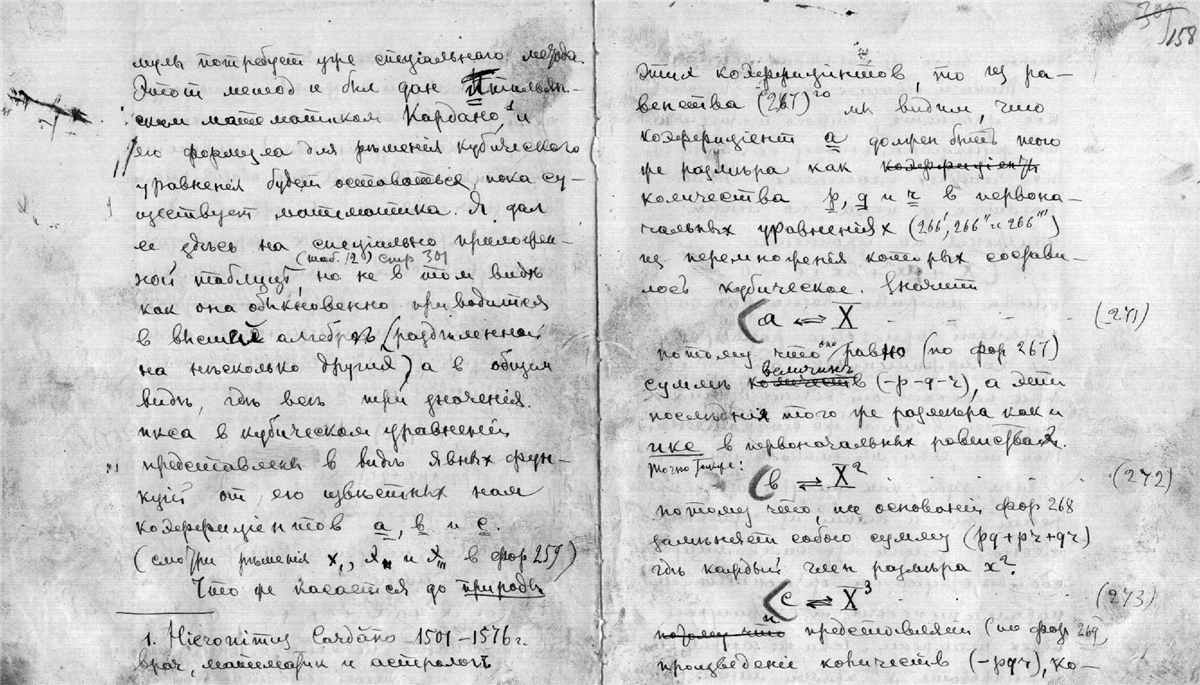 мулы потребует уже спеціальнаго метода.
Этот метод и был дан Итальян-
ским математиком Кардано,¹ и
его формула для рѣшенія кубическаго
уравненія будет оставаться, пока су-
ществует математика. Я дал
ее здѣсь на спеціально приложен-
(таб. 12) стр 301
ной таблицѣ, но не в том видѣ
как она обыкновенно приводится
в высшей алгебрѣ (раздѣленной
на нѣсколько других) а в общем
видѣ, гдѣ всѣ три значенія
икса в кубическом уравненіи
представлены в видѣ явных фун-
кцій от его извѣстных нам
коэффиціентов a, в и c.
(смотри рѣшенія x₁, x₁₁ и x₁₁₁ в фор 259)
Что же касается до природы
1. Hieronimus Cardano 1501–1576 г.
врач, математик и астролог
309
158
этих коэффиціентов, то из ра-
венства (267)го мы видим, что
коэффиціент a должен быть того
же размѣра как коэффиціенты
количества p, q и r в первона-
чальных уравненіях (266', 266'' и 266''')
из перемноженія которых состави-
лось кубическое. Значит
(a ⇌ X (271)
потому что оно равно (по фор 267)
суммѣ величинъ (-p-q-r), а эти
послѣднія того же размѣра как и
икс в первоначальных равенствах.
Точно также:
(в ⇌ X² (272)
потому что, на основаніи фор 268
замѣняет собою сумму (pq+pr+qr)
гдѣ каждый член размѣра x².
(c ⇌ X³ (273)
потому что п представляет (по фор 269)
произведеніе количеств (-pqr), ко-